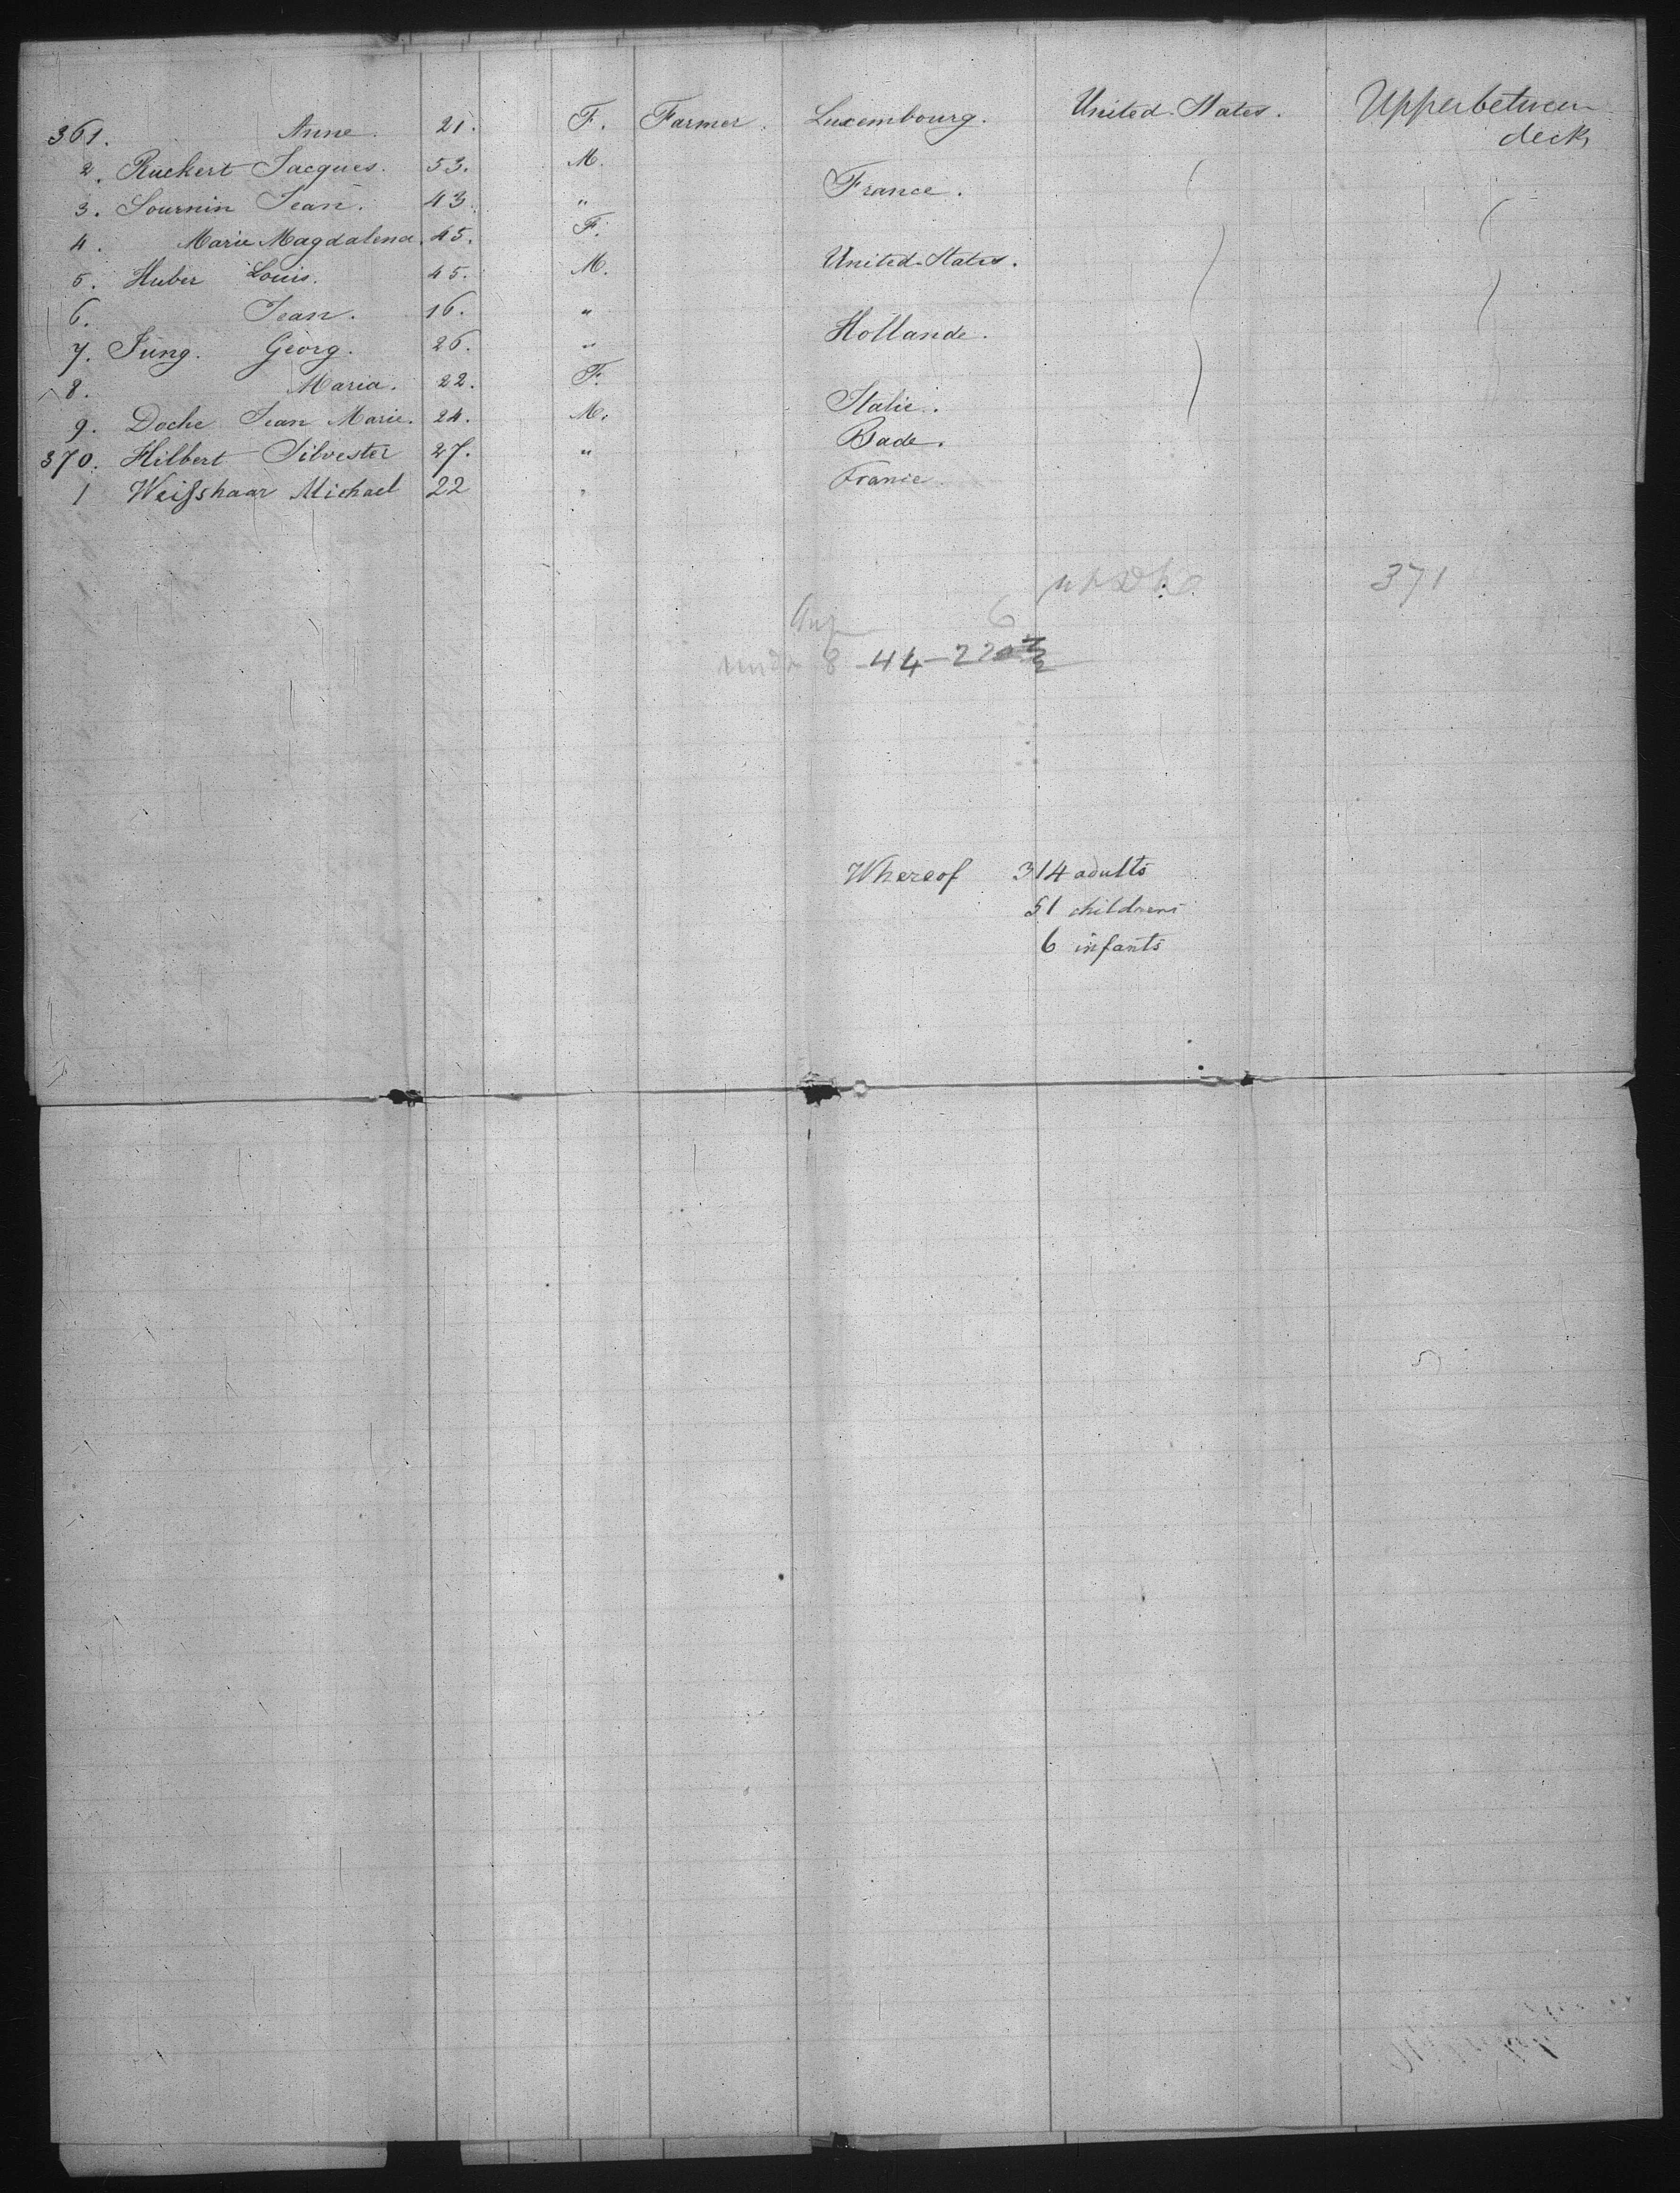 361. Anne. 21. F. Farmer. Luxembourg. United States. Upperbetween
deck
2. Ruckert Jacques. 53. M.
3. Sournin Jean. 43. " France.
4. Marie Magdalena. 45. F.
5. Huber Louis. 45. M. United States.
6. Jean. 16. "
7. Jung. Georg. 26. " Hollande.
8. Maria. 22. F.
9. Doche Jean Marie. 24. M. Italie.
370. Hilbert Silvester 27. " Bade.
1 Weißshaar Michael 22 " France.
371
6
8 44 - 22
Whereof 314 adults
51 childrens
6 infants